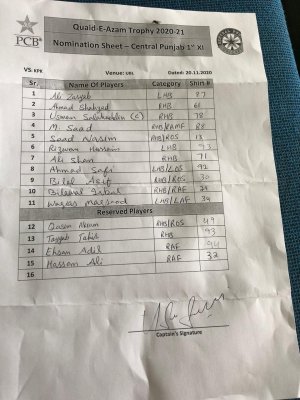 PCB
Quaid-E-Azam Trophy 2020-21
Nomination Sheet – Central Punjab 1st XI
VS: KPK Venue: UBL Dated: 20.11.2020
Sr. Name Of Players Category Shirt #
1 Ali Zaryab LHB 87
2 Ahmad Shahzad RHB
3 Usman Salahuddin (C) RHB 78
4 M. Saad RHB/RAMF 88
5 Saad Nasim RHB/ROS 13
6 Rizwan Hussain LHB 93
7 Ali Shan RHB 71
8 Ahmad Safi LHB/LOS 92
9 Bilal Asif RHB/ROS 30
10 Bilawal Iqbal RHB/RAF
11 Waqas Maqsood LHB/LAF
Reserved Players
12 Qasim Akram RHB/ROS 49
13 Tayyab Tahir RHB 93
14 Ehsan Adil RAF 94
15 Hassan Ali RAF 32
16
Captain's Signature